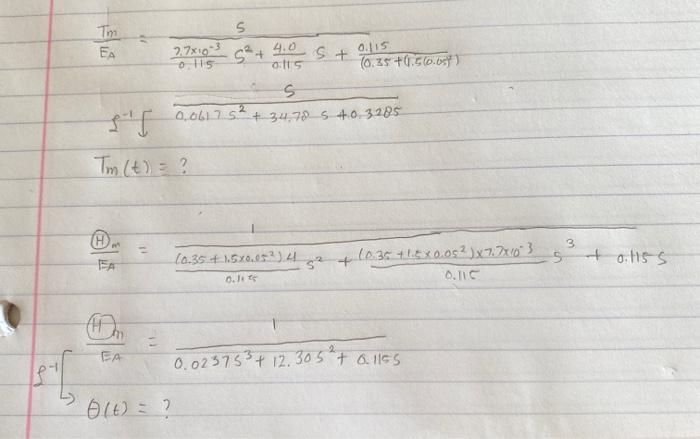 Tm/EA = s / (7.7x10^-3/0.115 s^2 + 4.0/0.115 s + 0.115/(0.35+(1.5(0.05)^2))
ℒ^-1[ s / (0.0617 s^2 + 34.78 s + 0.3285
Tm(t) = ?
Ⓗm/EA = 1 / ((0.35+1.5x0.05^2)4/0.115 s^2 + (0.35+1.5x0.05^2)x7.7x10^-3/0.115 s^3 + 0.115 s
Ⓗm/EA = 1 / (0.0237s^3 + 12.30s^2 + 0.115s
ℒ^-1[
θ(t) = ?